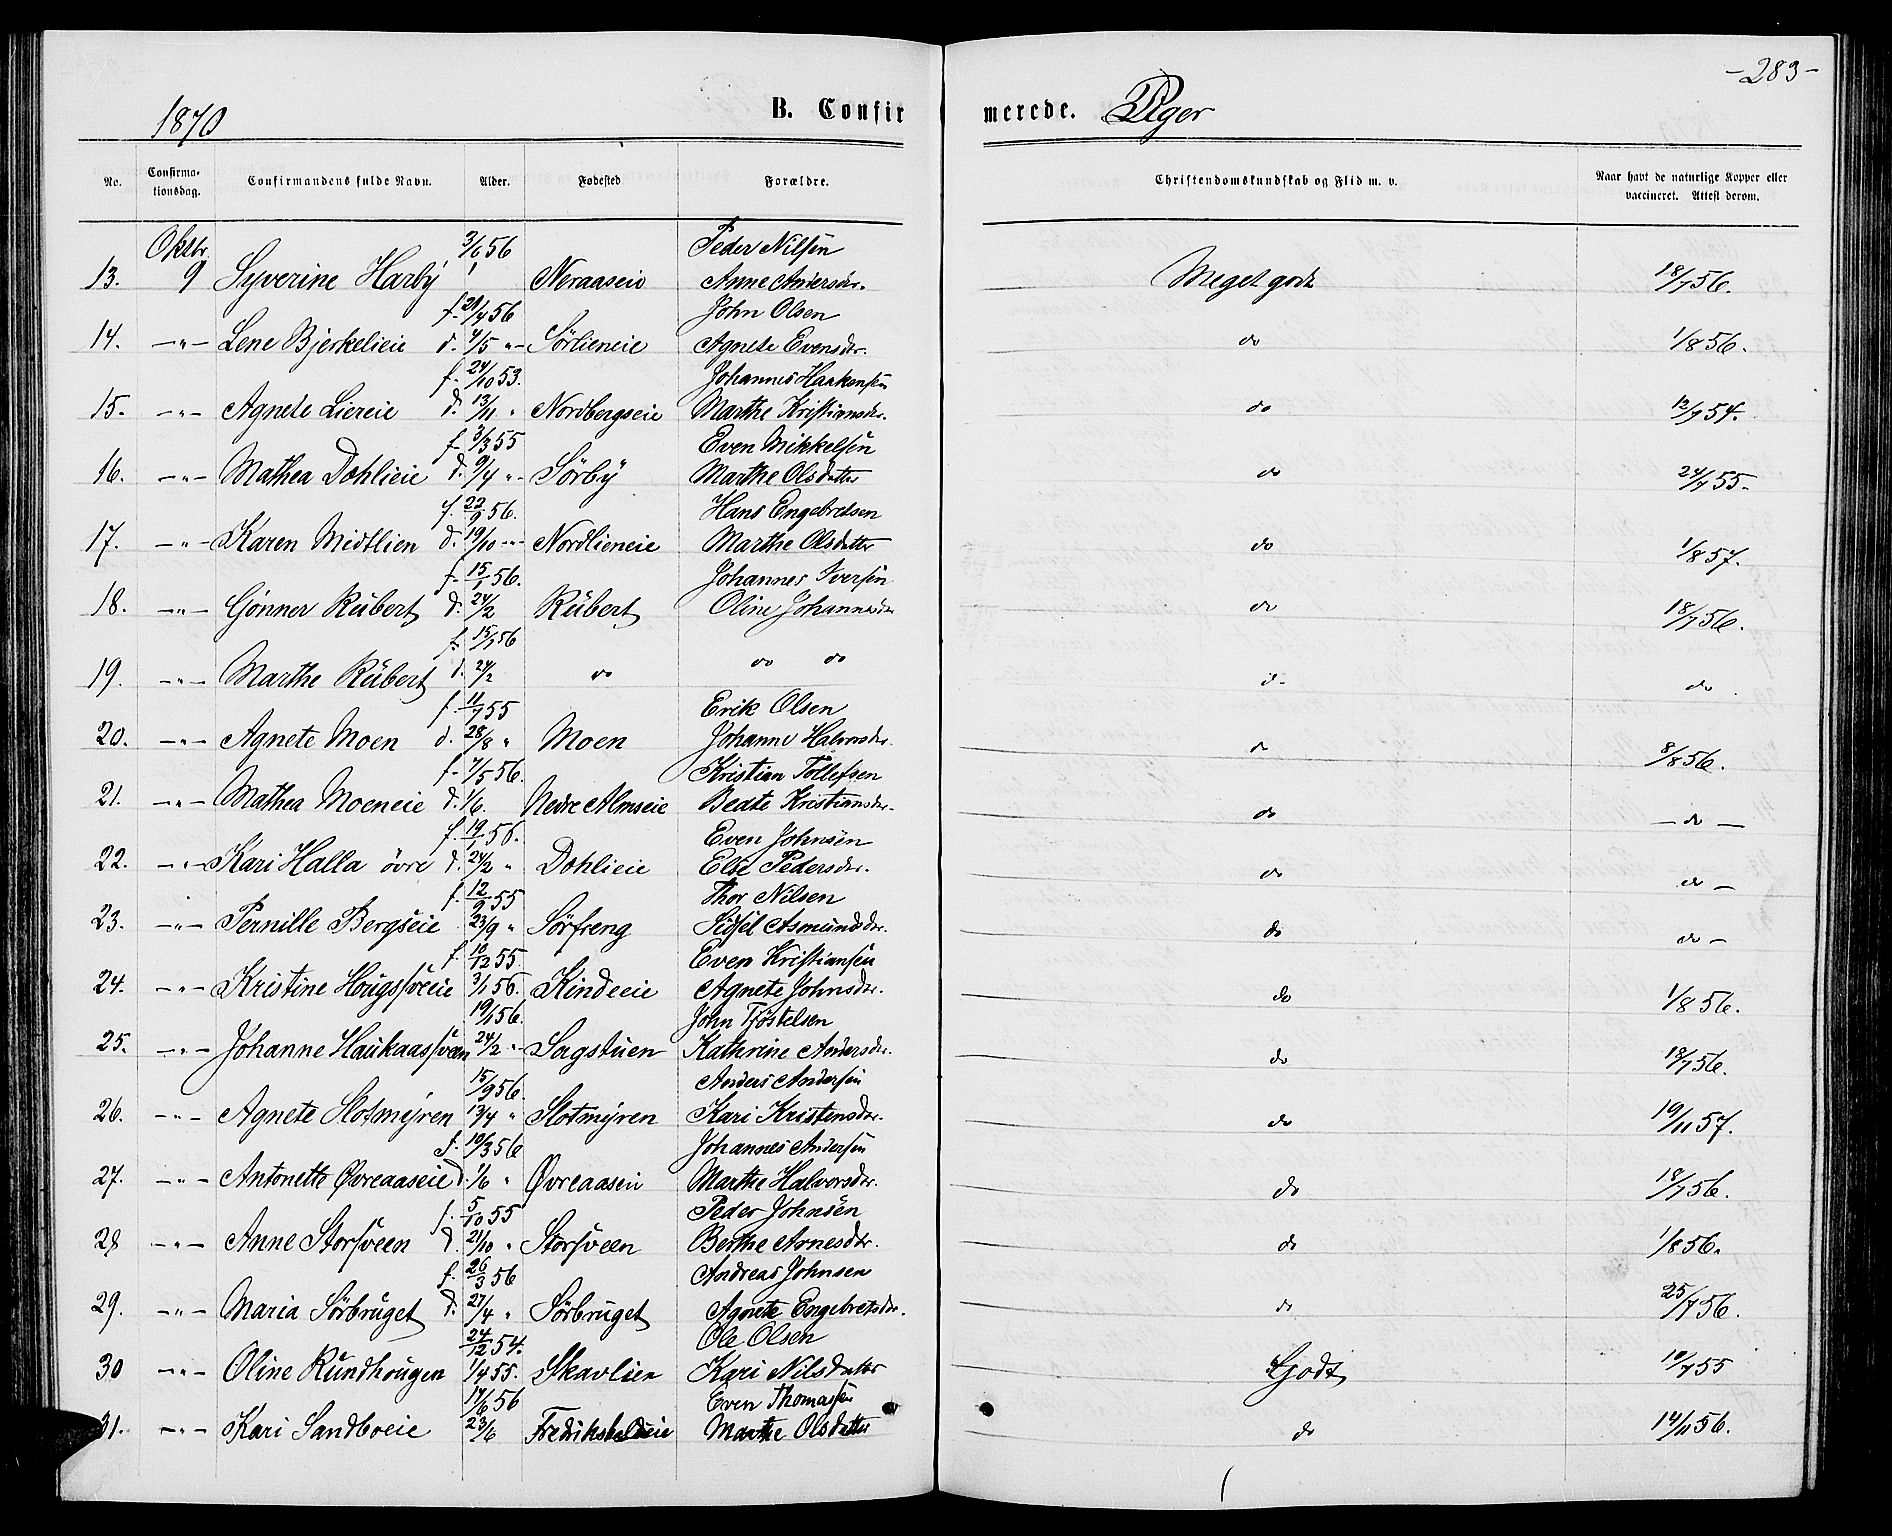 -283-
1870 B. Confirmerede. Piger
No. Confirmationsdag. Confirmandens fulde Navn. Alder. Fødested Forældre. Christendomskundskab og Flid m. v. Naar havt de naturlige Kopper eller vaccineret. Attest derom.
Oktbr 3/6 56 Peder Nilsen
13. 9 Syverine Harby Neraaseie Anne Andersdr. Meget godt 18/7 56.
f. 21/4 56 John Olsen
14. -"- Lene Bjerkelieie d. 4/5 "- Sørlieneie Agnete Evensdr. do 1/8 56.
f. 24/10 53. Johannes Haakensen
15. -"- Agnete Liereie d. 13/11 " Nordbergseie Marthe Kristiansdr. do 12/7 54.
f. 3/3 55 Even Mikkelsen
16. -"- Mathea Dohlieie d. 9/4 "- Sörby Marthe Olsdatter do 24/7 55.
f. 22/9 56. Hans Engebretsen
17. -"- Karen Midtlien d. 19/10 -"- Nordlieneie Marthe Olsdatter do 1/8 57.
f. 15/1 56. Johannes Iversen
18. -"- Gønner Rübert d. 24/2 Rübert Oline Johannesdr do 18/7 56.
f. 15/1 56
19. -"- Marthe Rübert d. 24/2 do do do d- do.
f. 11/7 55 Erik Olsen
20. -"- Agnete Moen d. 28/8 " Moen Johanne Halvorsdr. do 8/8 56.
f. 7/5 56. Kristian Tollefsen
21. -"- Mathea Moeneie d. 1/6. Nedre Almseie Beate Kristiansdr. do - do -
f. 19/1 56. Even Johnsen
22. -"- Kari Halla övre d. 24/2 " Dohlieie Else Pedersdr. do do -
f. 12/9 55 Thor Nilsen
23. -"- Pernille Bergseie 23/9 " Sörfreng Sidsel Asmundsdr. do do -
f. 10/12 55. Even Kristiansen
24. -"- Kristine Hougssveeie 3/1 56. Kindeeie Agnete Johnsdr. do 1/8 56.
19/1 56. John Tjöstelsen
25. -"- Johanne Haukaassveen 24/2 "- Sagstuen Kathrine Andersdr. do 18/7 56.
15/9 56. Anders Andersen
26. -"- Agnete Slotmyren 13/4 " Slotmyren Kari Kristensdr. do 19/11 57.
f. 10/3 56 Johannes Andersen
27. -"- Antonette Øvreaaseie d. 1/6 " Øvreaasen Marthe Halvorsdr. do 18/7 56.
f. 5/10 55 Peder Johnsen
28 -"- Anne Storsveen d. 21/10 " Storsveen Berthe Arnesdtr. do 1/8 56.
f. 26/3 56 Andreas Johnsen
29. -"- Maria Sörbruget d. 27/4 " Sörbruget Agnete Engebretsdr. do 25/7 56.
24/12 54. Ole Olsen
30 -"- Oline Rundhougen 1/4 55. Skavlien Kari Nilsdatter Godt 10/7 55
17/6 56 Even Thomassen
31. -"- Kari Sandboeie 23/6 Fredriksholdeie Marthe Olsdatter do 14/11 56.